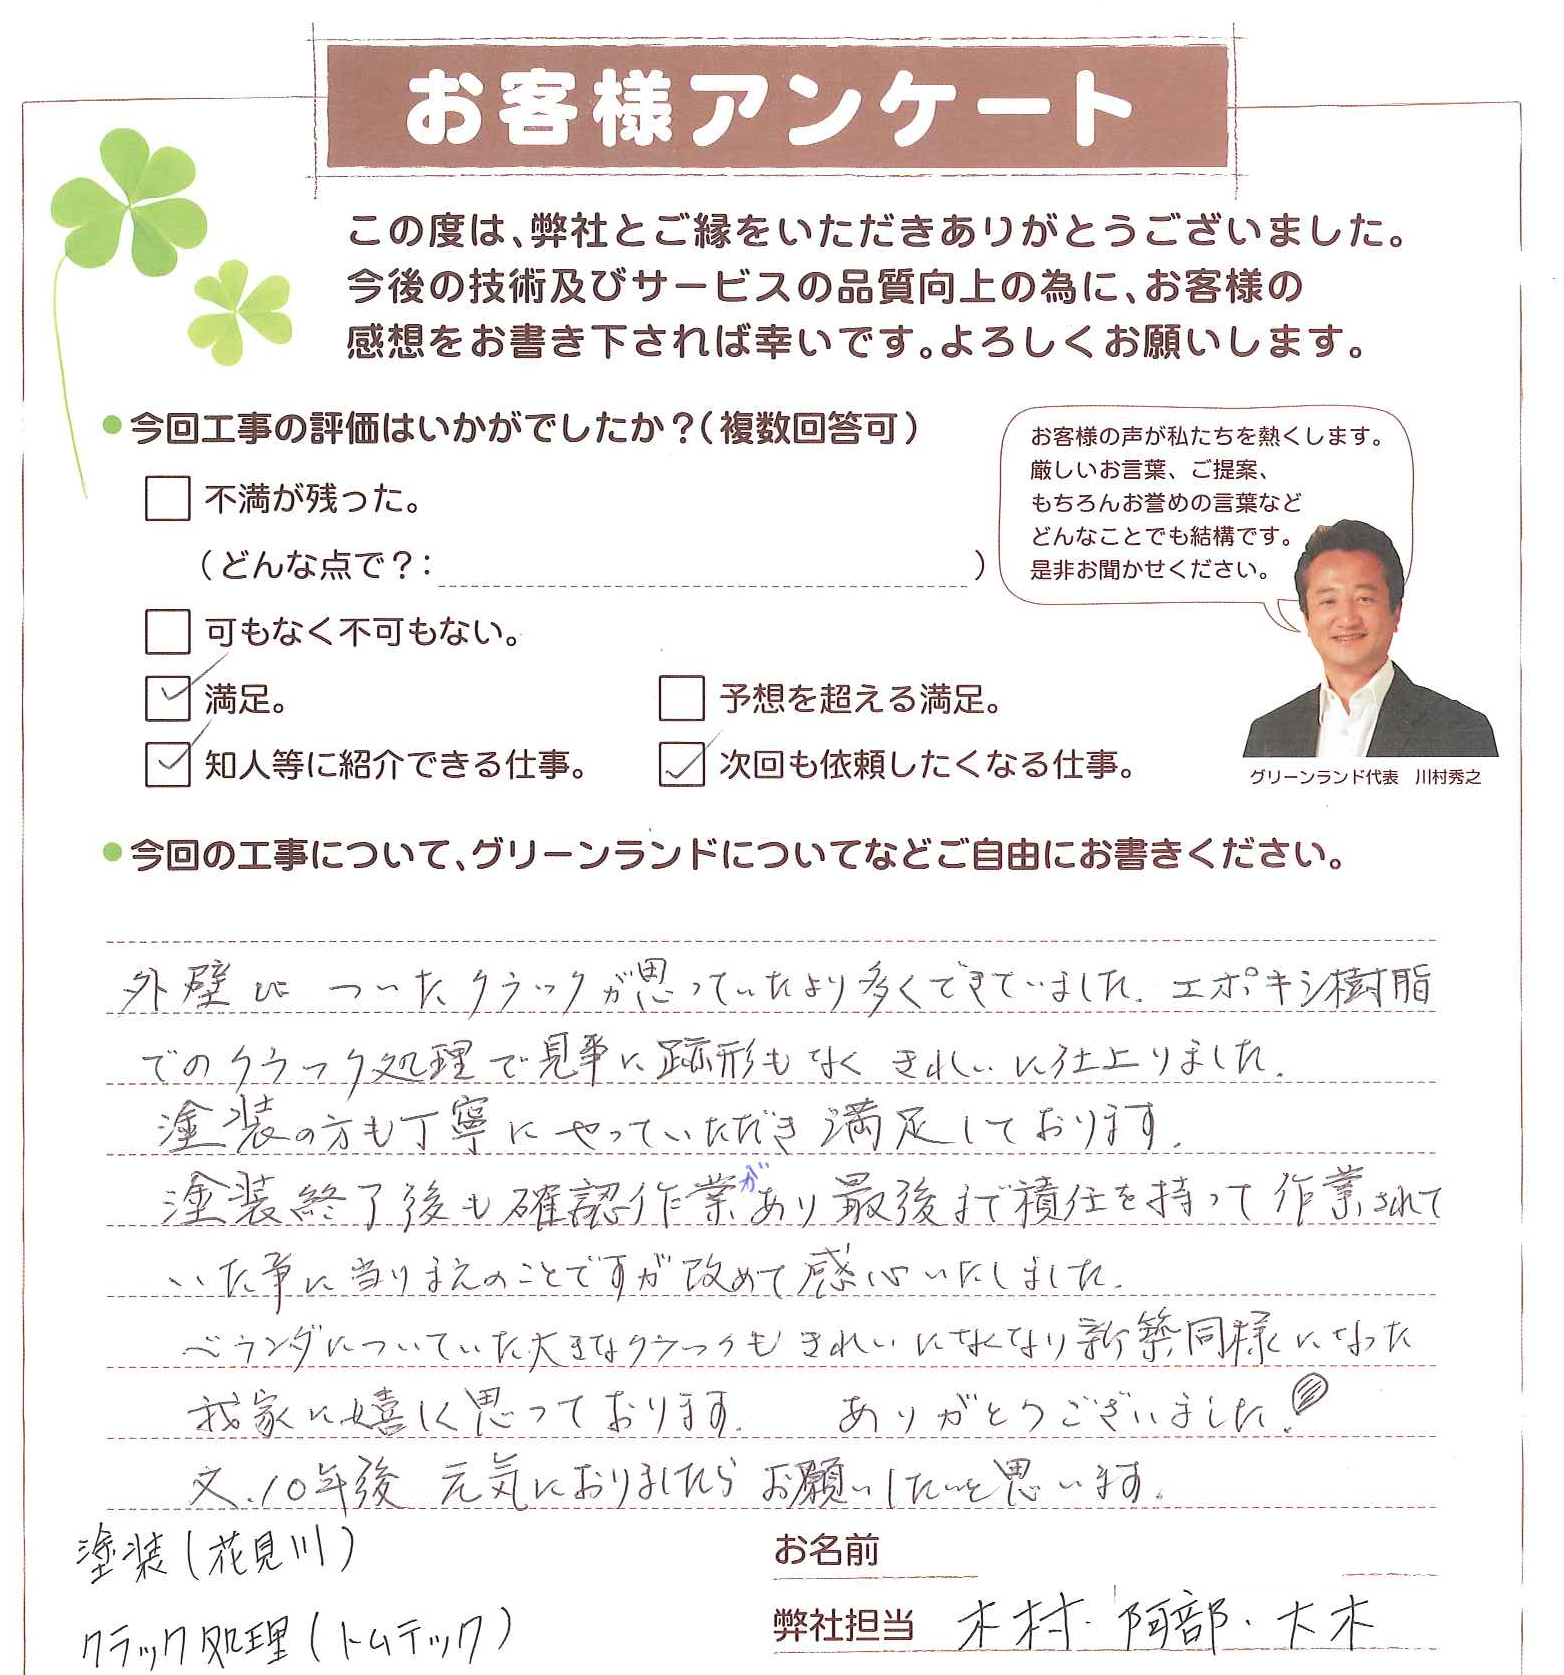 お客様アンケート
この度は、弊社とご縁をいただきありがとうございました。
今後の技術及びサービスの品質向上の為に、お客様の
感想をお書き下されば幸いです。よろしくお願いします。
今回工事の評価はいかがでしたか？（複数回答可）
お客様の声が私たちを熱くします。
厳しいお言葉、ご提案、
もちろんお誉めの言葉など
どんなことでも結構です。
是非お聞かせください。
不満が残った。
（どんな点で？：　）
可もなく不可もない。
満足。
予想を超える満足。
知人等に紹介できる仕事。
次回も依頼したくなる仕事。
グリーンランド代表　川村秀之
今回の工事について、グリーンランドについてなどご自由にお書きください。
外壁に ついたクラックが思っていたより多くできていました. エポキシ樹脂
でのクラック処理で見事に跡形もなく きれいに仕上りました.
塗装の方も丁寧に やっていただき 満足しております.
塗装終了後も確認作業があり最後まで積任を持って作業されて
いた事に当りまえのことですが改めて感心いたしました.
ベランダについていた大きなクラックもきれいになくなり新築同様になった
我家に嬉しく思っております.　ありがとうございました!
又.10年後 元気におりましたらお願いしたいと思います.
塗装(花見川)
お名前
クラック処理(トムテック)
弊社担当 木村・阿部・大木